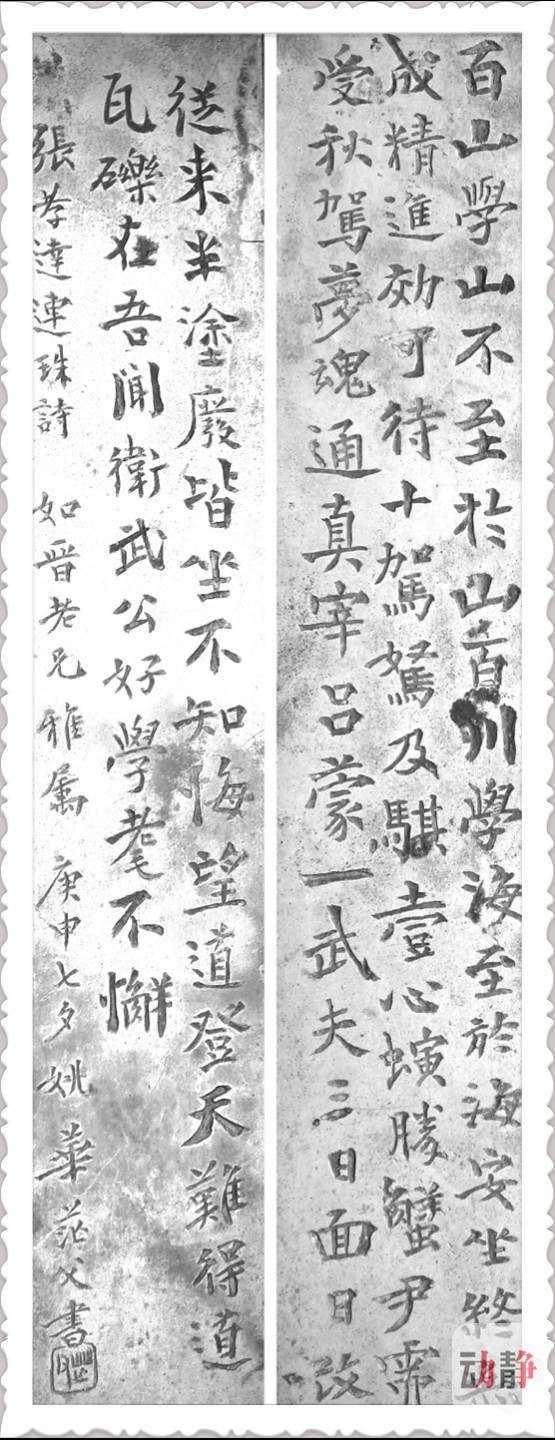 百山學山不至於山百川學海至於海安坐終
成精進効可待十駕駑及騏壹心螾勝蟹尹需
受秋駕夢魂通真宰呂蒙一武夫三日面目改
從来半塗廢皆坐不知悔望道登天難得道
瓦礫在吾聞衛武公好學耄不懈
張孝達連珠詩 如晉老兄雅属 庚申七夕姚華茫父書
动静